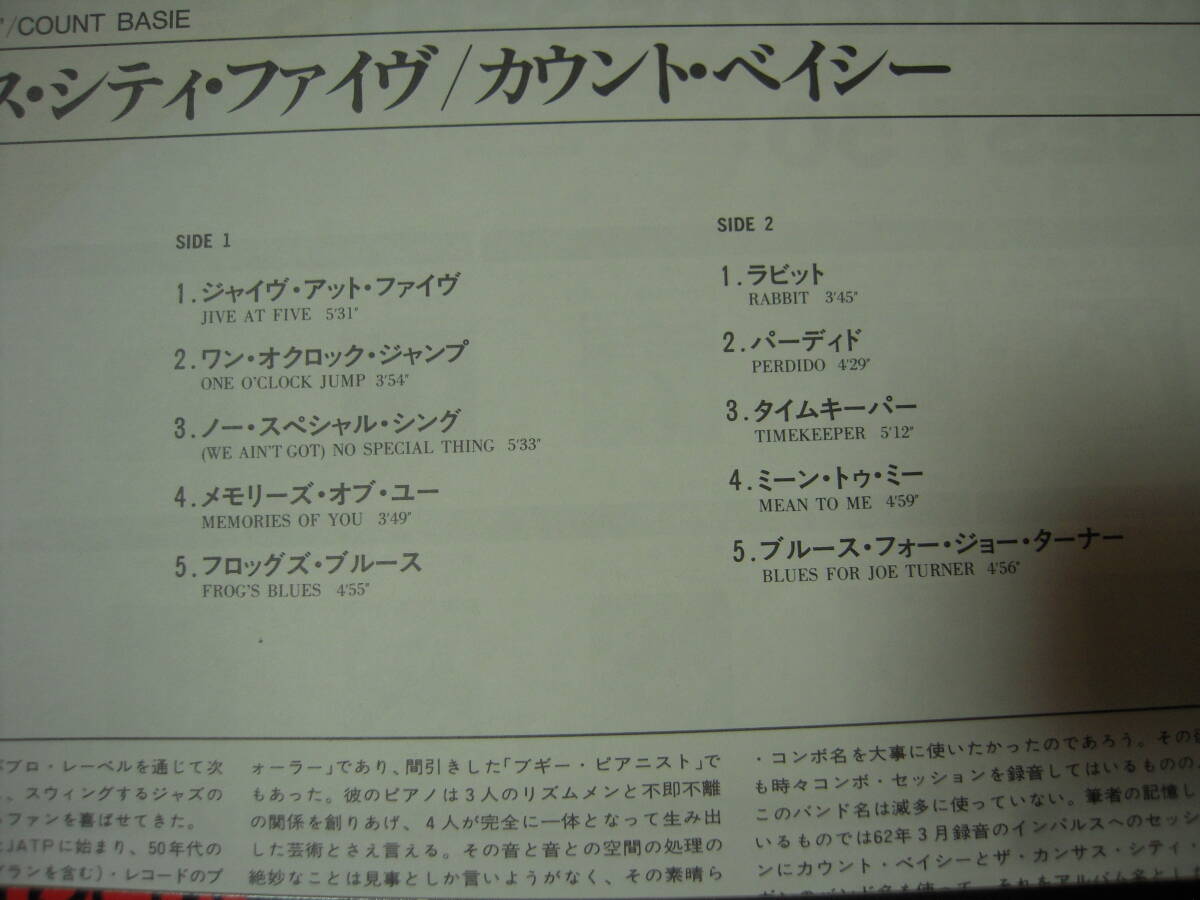 /COUNT BASIE
ス・シティ・ファイヴ/カウント・ベイシー
SIDE 1
1.ジャイヴ・アット・ファイヴ
JIVE AT FIVE 5'31"
2.ワン・オクロック・ジャンプ
ONE O'CLOCK JUMP 3'54"
3.ノー・スペシャル・シング
(WE AIN'T GOT) NO SPECIAL THING 5'33"
4.メモリーズ・オブ・ユー
MEMORIES OF YOU 3'49"
5.フロッグズ・ブルース
FROG'S BLUES 4'55"
SIDE 2
1.ラビット
RABBIT 3'45"
2.パーディド
PERDIDO 4'29"
3.タイムキーパー
TIMEKEEPER 5'12"
4.ミーン・トゥ・ミー
MEAN TO ME 4'59"
5.ブルース・フォー・ジョー・ターナー
BLUES FOR JOE TURNER 4'56"
パブロ・レーベルを通じて次
、スウィングするジャズの
ファンを喜ばせてきた。
JATPに始まり、50年代の
グランを含む)・レコードのプ
ォーラー」であり、間引きした「ブギー・ピアニスト」で
もあった。彼のピアノは3人のリズムメンと不即不離
の関係を創りあげ、4人が完全に一体となって生み出
した芸術とさえ言える。その音と音との空間の処理の
絶妙なことは見事としか言いようがなく、その素晴ら
・コンボ名を大事に使いたかったのであろう。その
も時々コンボ・セッションを録音してはいるものの、
このバンド名は滅多に使っていない。筆者の記憶し
いるものでは62年3月録音のインパルスへのセッシ
ンにカウント・ベイシーとザ・カンサス・シティ・
のバンド名を使って、それをアルバム名とし